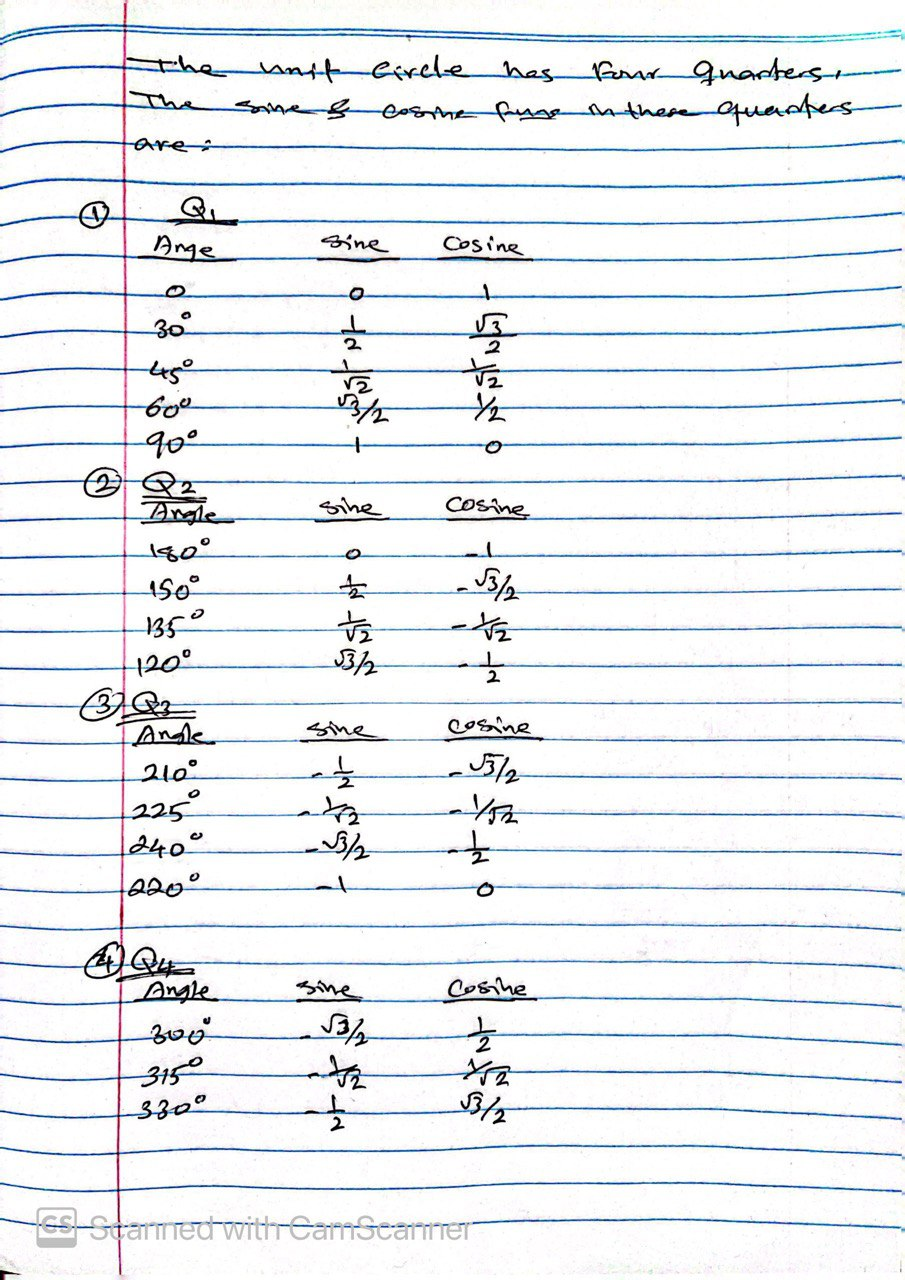 The unit circle has four quarters.
The sine & cosine funs in these quarters
are:
① Q1
Ange sine cosine
0 0 1
30° 1/2 √3/2
45° 1/√2 1/√2
60° √3/2 1/2
90° 1 0
② Q2
Angle sine cosine
180° 0 -1
150° 1/2 -√3/2
135° 1/√2 -1/√2
120° √3/2 -1/2
③ Q3
Angle sine cosine
210° -1/2 -√3/2
225° -1/√2 -1/√2
240° -√3/2 -1/2
220° -1 0
④ Q4
Angle sine cosine
300° -√3/2 1/2
315° -1/√2 1/√2
330° -1/2 √3/2
CS Scanned with CamScanner